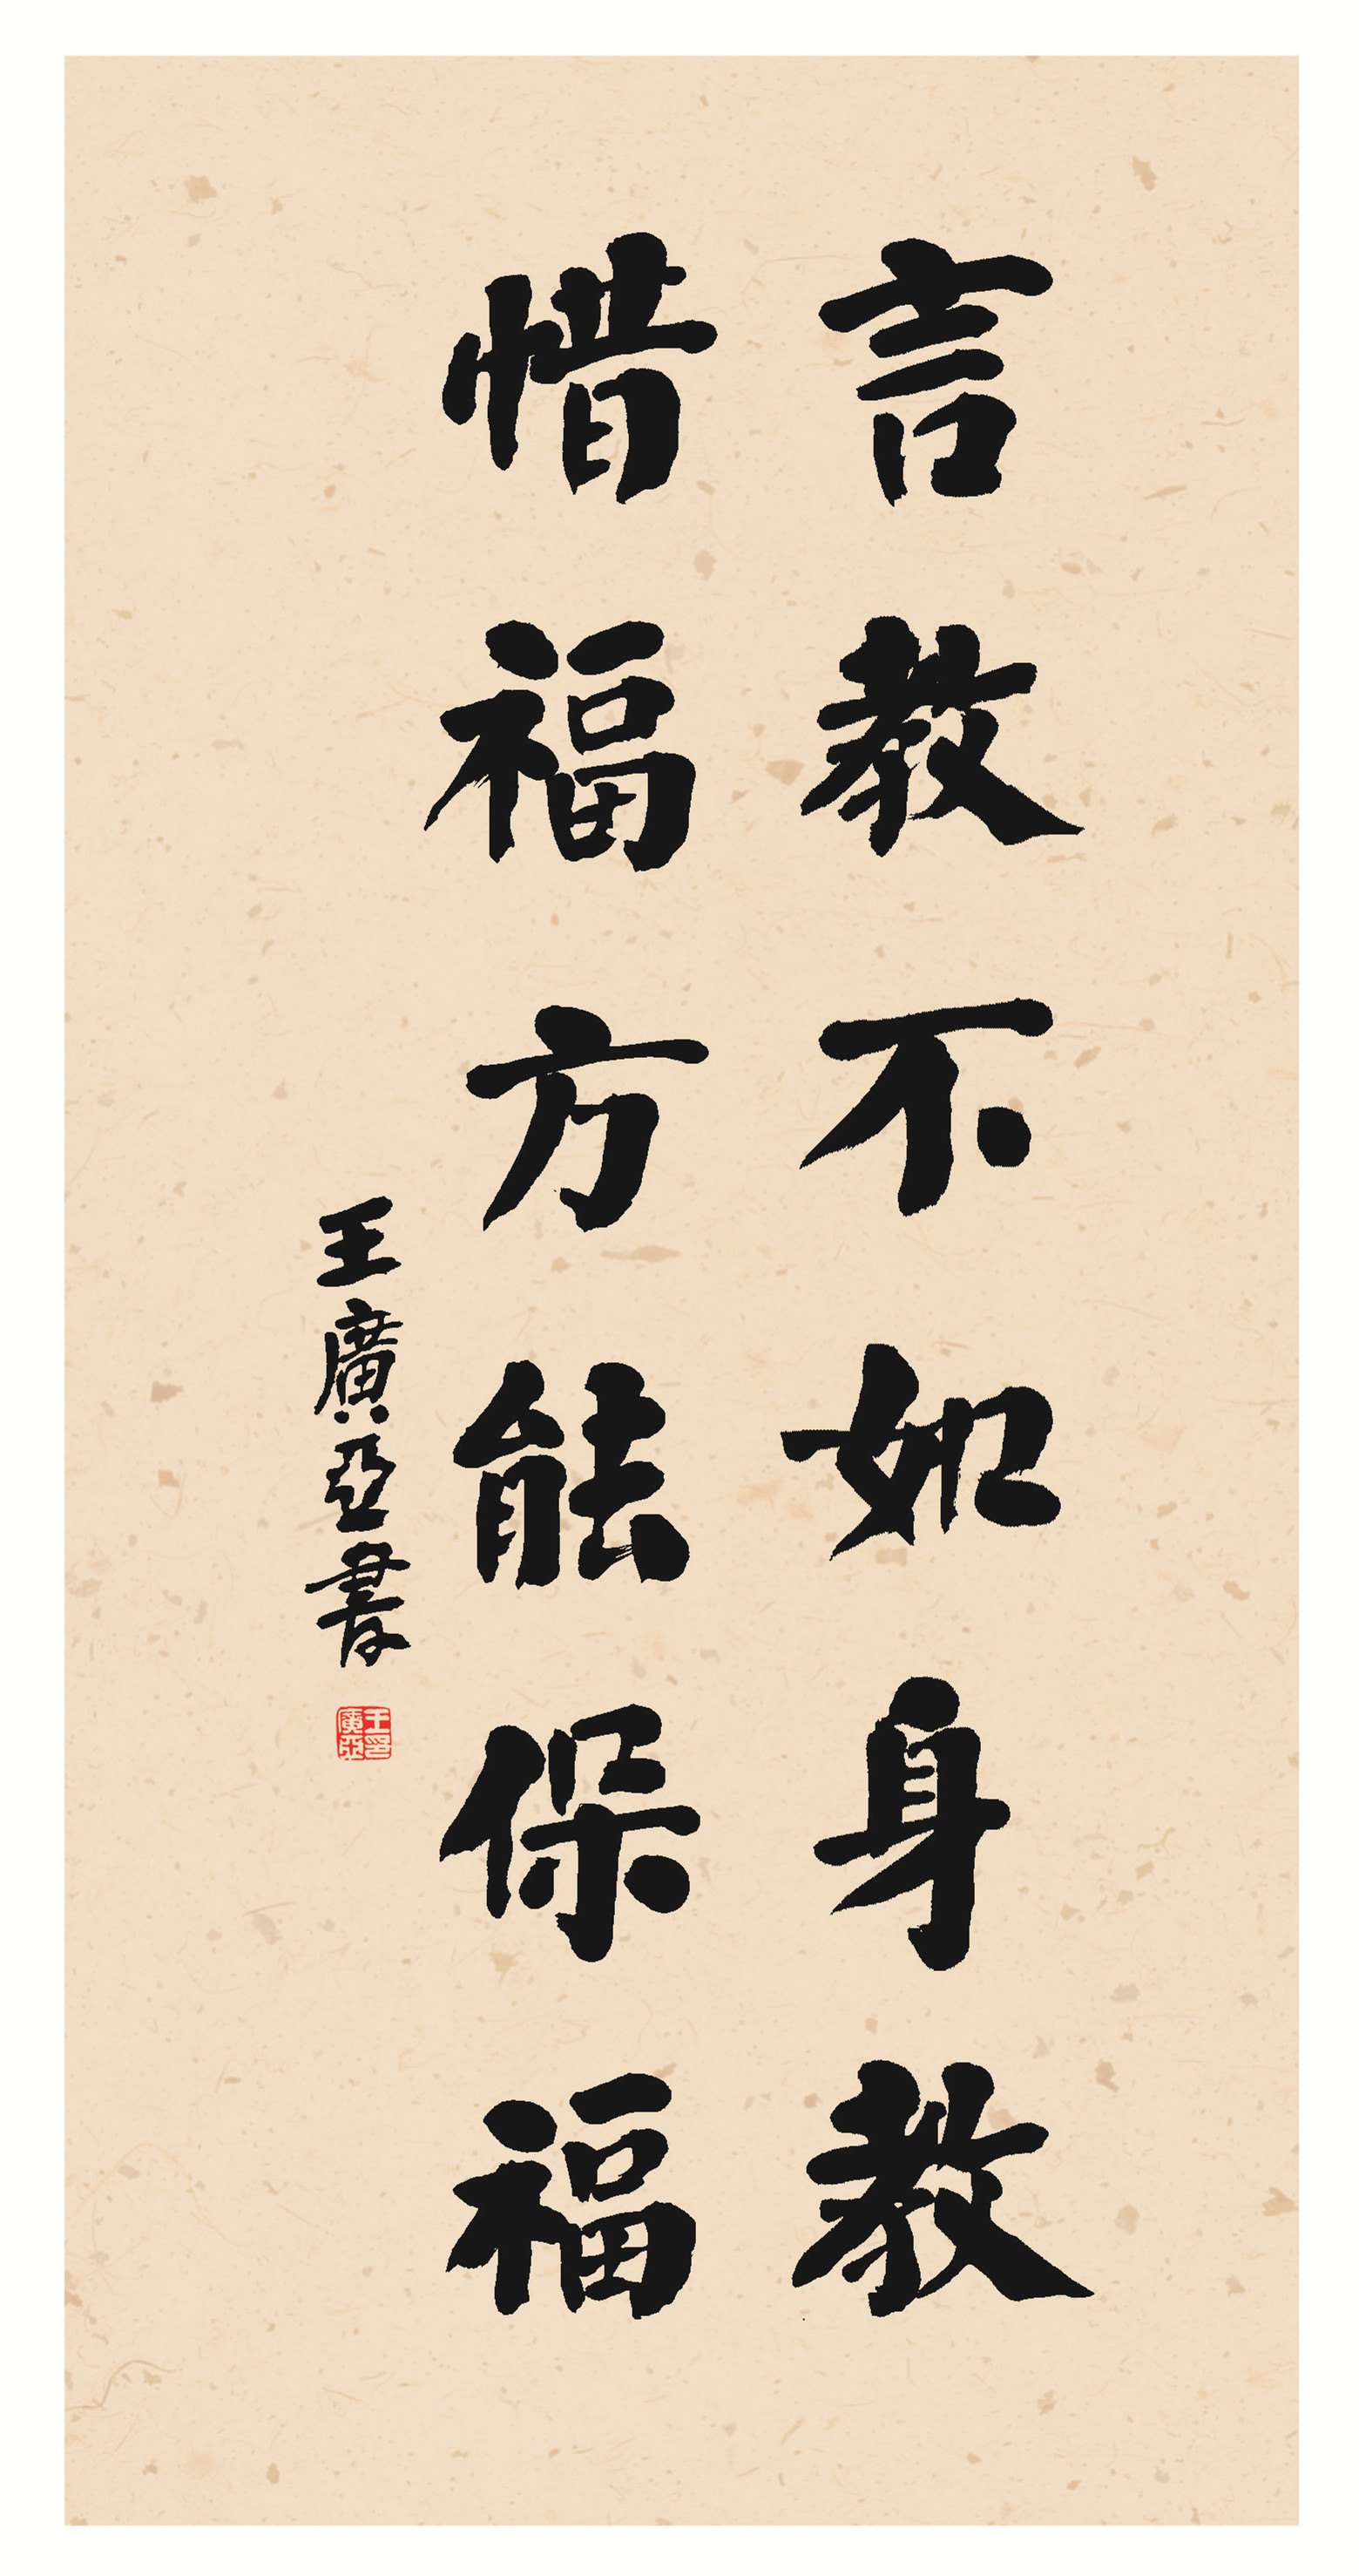 言教不如身教
惜福方能保福
王廣亞書
王印
廣亞